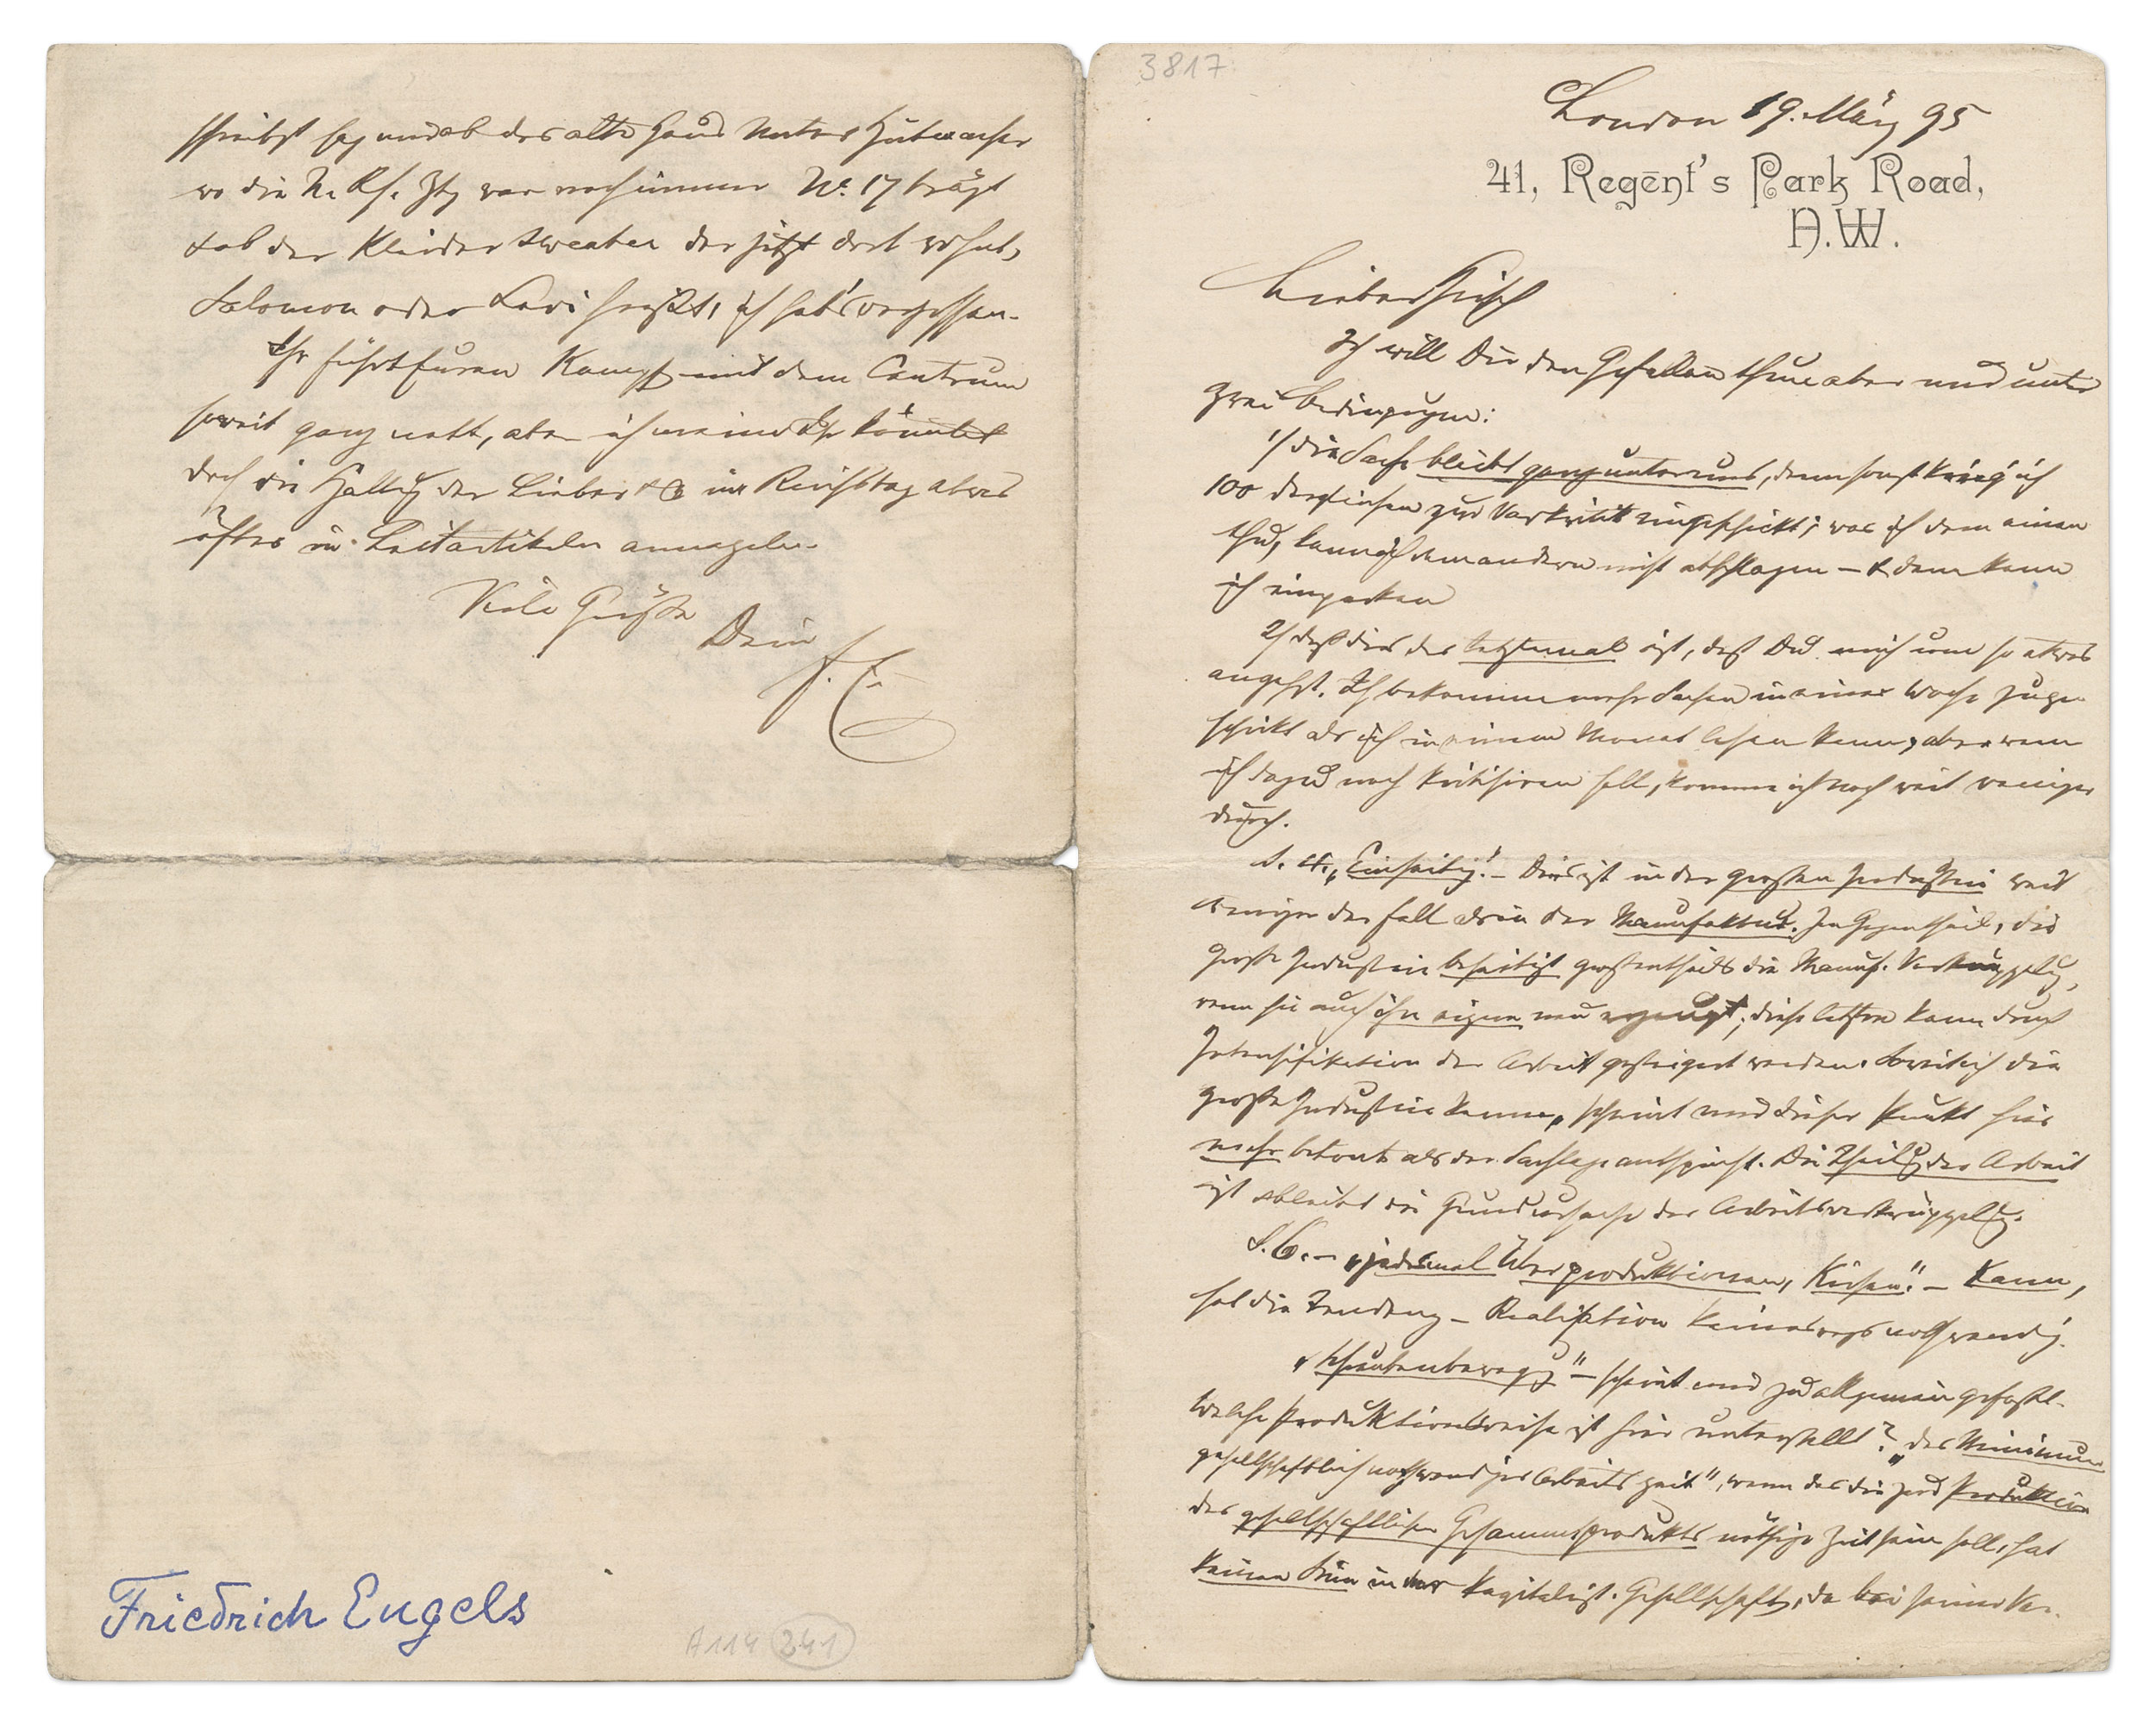 schreibst sag mir ob das alte Haus Unter Hutmacher
wo die N. Rh. Ztg war noch immer No. 17 trägt
& ob der Kleidersweater der jetzt dort wohnt,
Salomon oder Levi heißt, ich hab's vergessen.
Ihr führt Euren Kampf mit dem Centrum
soweit ganz nett, aber ich meine Ihr könntet
doch die Haltg der Lieber & Co im Reichstag etwas
öfter in Leitartikeln annageln.
Viele Grüße
Dein
F. E.
Friedrich Engels
A114 241
3817
London 19. März 95
41, Regent's Park Road,
N.W.
Lieber Hirsch
Ich will Dir den Gefallen thun aber nur unter
zwei Bedingungen:
1/ die Sache bleibt ganz unter uns, denn sonst krieg' ich
100 dergleichen zur Vorkritik zugeschickt; was ich dem einen
thu, kann ich dem andern nicht abschlagen — & dann kann
ich einpacken
2/ daß dies das letztemal ist, daß Du mich um so etwas
angehst. Ich bekomme mehr Sachen in einer Woche zuge-
schickt als ich in einem Monat lesen kann, aber wenn
ich dazu noch kritisiren soll, komme ich noch weit weniger
durch.
S. 4. „Einseitig". — Dies ist in der großen Industrie weit
weniger der Fall als in der Manufaktur. Im Gegentheil, die
große Industrie beseitigt großentheils die Manuf. Verkrüpplg,
wenn sie auch ihre eigne neu erzeugt; diese letztre kann durch
Intensifikation der Arbeit gesteigert werden. Soweit ich die
große Industrie kenne, scheint mir dieser Punkt hier
mehr betont als der Sachlage entspricht. Die Theilg der Arbeit
ist & bleibt die Grundursache der Arbeitsverkrüppelg.
S. 6. — „jedesmal Überproduktionen, Krisen". — Kann,
hat die Tendenz — Realisation keineswegs nothwendig.
„Schraubenbewegg" — scheint mir zu allgemein gefaßt.
Welche Produktionsweise ist hier unterstellt? „das Minimum
gesellschaftlich nothwendiger Arbeitszeit", wenn das die zur Produktion
des gesellschaftlichen Gesammtprodukts nöthige Zeit sein soll, hat
keinen Sinn in der kapitalist. Gesellschaft, da bei seiner Ver-